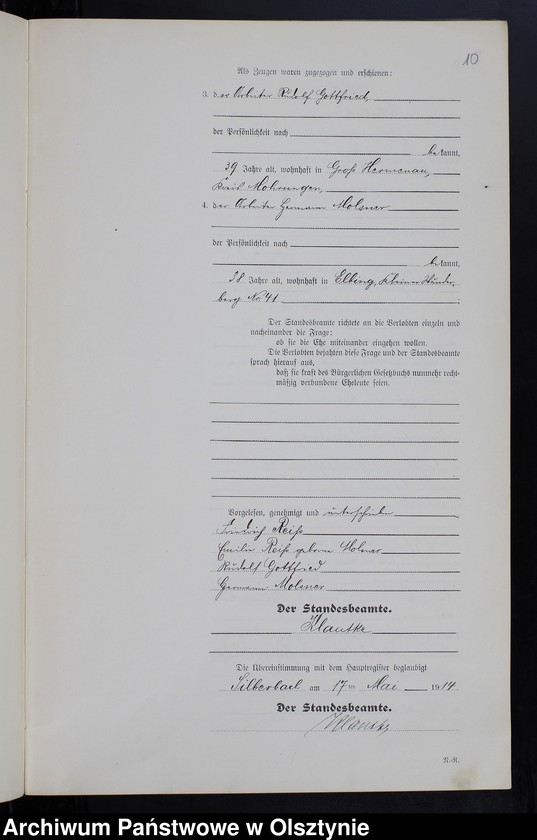 10
Als Zeugen waren zugezogen und erschienen:
3. der Arbeiter Rudolf Gottfried,
der Persönlichkeit nach
bekannt,
39 Jahre alt, wohnhaft in Groß Hermenau,
Kreis Mohrungen,
4. der Arbeiter Hermann Molsner
der Persönlichkeit nach
bekannt,
38 Jahre alt, wohnhaft in Elbing,
berg No. 41
Der Standesbeamte richtete an die Verlobten einzeln und
nacheinander die Frage:
ob sie die Ehe miteinander eingehen wollen.
Die Verlobten bejahten diese Frage und der Standesbeamte
sprach hierauf aus,
daß sie kraft des Bürgerlichen Gesetzbuchs nunmehr recht-
mäßig verbundene Eheleute seien.
Vorgelesen, genehmigt und unterschrieben
Friedrich Reiß
Emilie Reiß geborene Molsner
Rudolf Gottfried
Hermann Molsner
Der Standesbeamte.
Klautke
Die Übereinstimmung mit dem Hauptregister beglaubigt
Silberbach am 17ten Mai 1914
Der Standesbeamte.
Klautke
R.-R.
Archiwum Państwowe w Olsztynie